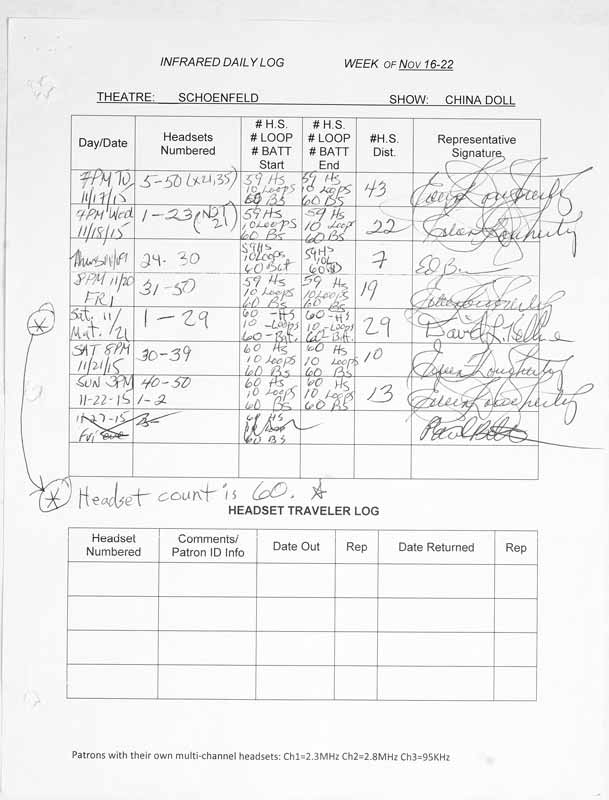 INFRARED DAILY LOG WEEK OF NOV 16-22
THEATRE: SCHOENFELD SHOW: CHINA DOLL
Day/Date
Headsets Numbered
# H.S.
# LOOP
# BATT
Start
# H.S.
# LOOP
# BATT
End
#H.S.
Dist.
Representative
Signature
7PM TU
11/17/15
5-50 (x21,35)
59 Hs
10 Loops
60 BS
59 Hs
10 Loops
60 BS
43
4PM Wed
11/18/15
1-23 (No 21)
59 HS
10 Loops
60 BS
59 HS
10 Loop
60 BS
22
24-30
59 HS
10 Loops
60 Bat
59 HS
10L
7
8PM 11/20
FRI
31-50
59 HS
10 Loops
60 BS
59 HS
10 Loops
60 BS
19
Sat. 11/
Mat. /21
1-29
60 -HS
10 -Loops
60-Bat.
60-HS
10-Loops
60-Bat.
29
SAT 8PM
11/21/15
30-39
60 HS
10 Loops
60 BS
60 HS
10 Loops
60 BS
10
SUN 3PM
11-22-15
40-50
1-2
60 HS
10 Loops
60 BS
60 HS
10 Loops
60 BS
13
11-27-15
Fri
60 HS
60 BS
Headset count is 60.
HEADSET TRAVELER LOG
Headset
Numbered
Comments/
Patron ID Info
Date Out
Rep
Date Returned
Rep
Patrons with their own multi-channel headsets: Ch1=2.3MHz Ch2=2.8MHz Ch3=95KHz